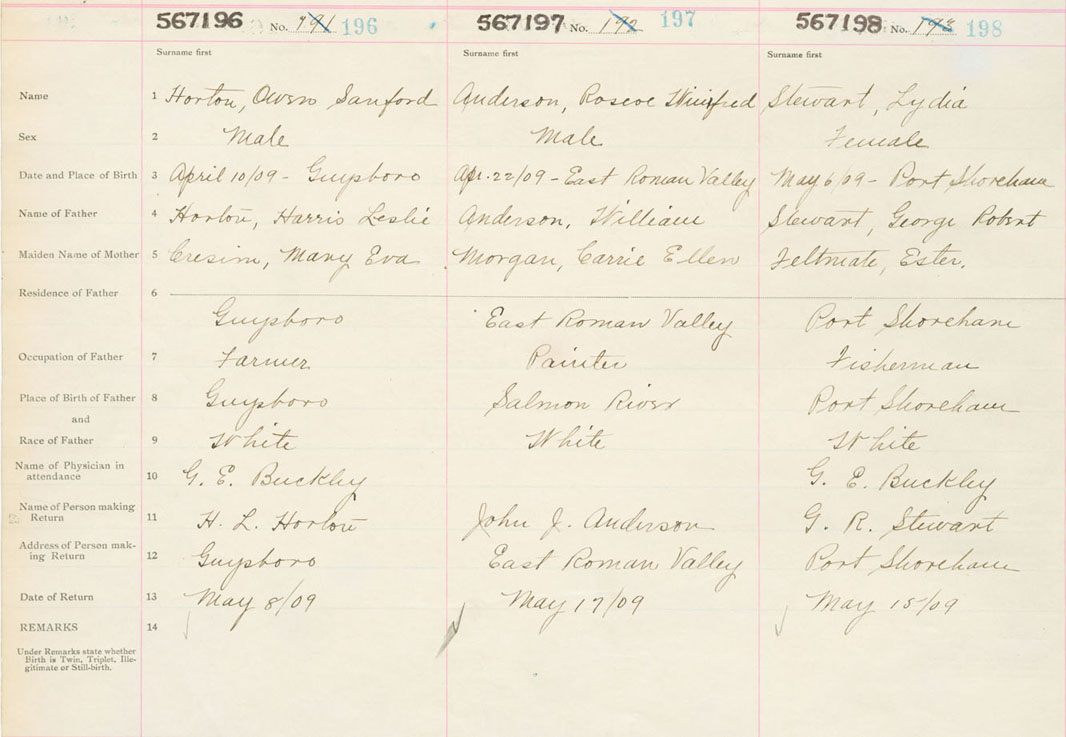 567196 No. 191 196 567197 No. 192 197 567198 No. 193 198
Surname first Surname first Surname first
Name 1 Horton, Owen Sanford Anderson, Roscoe Winifred Stewart, Lydia
Sex 2 Male Male Female
Date and Place of Birth 3 April 10/09 - Guysboro Apr. 22/09 - East Roman Valley May 6/09 - Port Shoreham
Name of Father 4 Horton, Harris Leslie Anderson, William Stewart, George Robert
Maiden Name of Mother 5 Mary Eva Morgan, Carrie Ellen Feltmate, Ester.
Residence of Father 6
Guysboro East Roman Valley Port Shoreham
Occupation of Father 7 Farmer Painter Fisherman
Place of Birth of Father 8 Guysboro Salmon River Port Shoreham
and
Race of Father 9 White White White
Name of Physician in
attendance 10 G. E. Buckley G. E. Buckley
Name of Person making
Return 11 H. L. Horton John J. Anderson G. R. Stewart
Address of Person mak-
ing Return 12 Guysboro East Roman Valley Port Shoreham
Date of Return 13 May 8/09 May 17/09 May 15/09
REMARKS 14
Under Remarks state whether
Birth is Twin, Triplet, Ille-
gitimate or Still-birth.